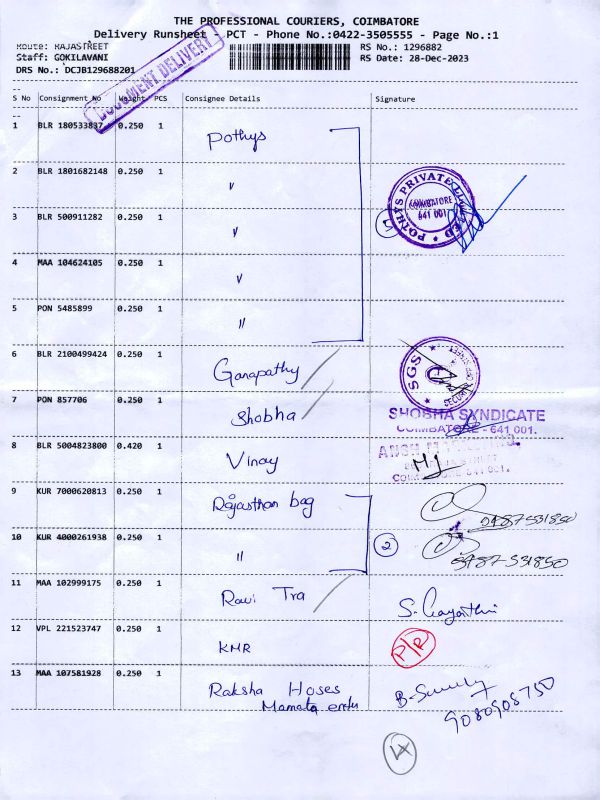 THE PROFESSIONAL COURIERS, COIMBATORE
Delivery Runsheet - PCT - Phone No.:0422-3505555 - Page No.:1
Route: RAJASTREET
RS No.: 1296882
Staff: GOKILAVANI
RS Date: 28-Dec-2023
DRS No.: DCJB129688201
DOCUMENT DELIVERY
S No Consignment No Weight PCS Consignee Details Signature
1 BLR 180533837 0.250 1 Pothys
2 BLR 1801682148 0.250 1 "
POTHYS PRIVATE LIMITED
COIMBATORE
641 001
3 BLR 500911282 0.250 1 "
4 MAA 104624105 0.250 1 "
5 PON 5485899 0.250 1 "
6 BLR 2100499424 0.250 1 Ganapathy
SGS
7 PON 857706 0.250 1 Shobha
SHOBHA SYNDICATE
COIMBATORE - 641 001.
8 BLR 5004823800 0.420 1 Vinay
9 KUR 7000620813 0.250 1 Rajasthan bag
10 KUR 4000261938 0.250 1 " 2
11 MAA 102999175 0.250 1 Ravi Tra S. Gayathri
12 VPL 221523747 0.250 1 KMR P/R
13 MAA 107581928 0.250 1 Raksha Hoses
Mamata
9080908750